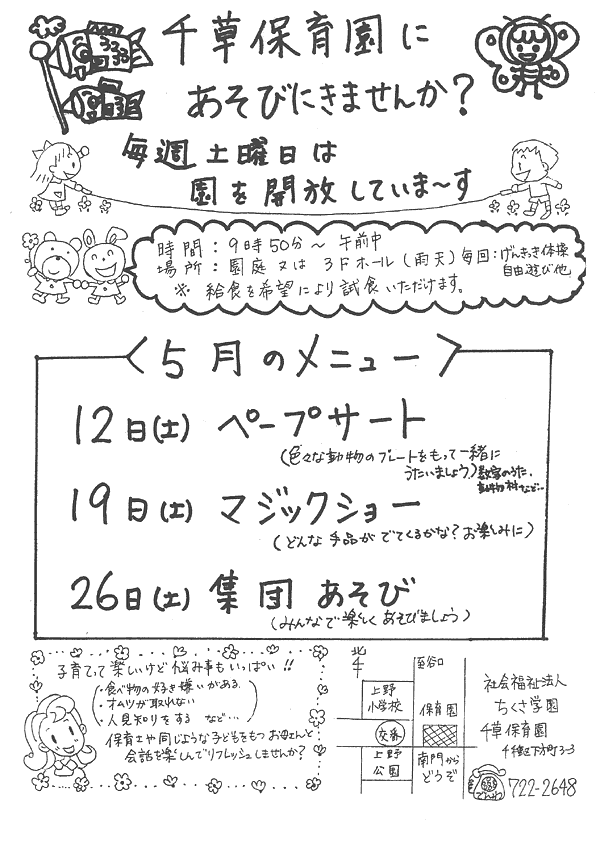 千草保育園に
あそびにきませんか?
毎週土曜日は
園を開放していま〜す
時間：9時50分〜午前中
場所：園庭又は3Fホール(雨天)
毎回：げんきっき体操
自由遊び他
※給食を希望により試食いただけます。
〈5月のメニュー〉
12日(土) ペープサート
(色々な動物のプレートをもって一緒に
うたいましょう。)数字のうた.
動物村など..
19日(土) マジックショー
(どんな手品がでてくるかな?お楽しみに)
26日(土) 集団あそび
(みんなで楽しくあそびましょう)
子育てって楽しいけど悩み事もいっぱい!!
・食べ物の好き嫌いがある.
・オムツが取れない
・人見知りをする など…
保育士や同じような子どもをもつお母さんと
会話を楽しんでリフレッシュしませんか?
北
至谷口
上野
小学校
保育園
交番
上野
公園
南門から
どうぞ
社会福祉法人
ちくさ学園
千草保育園
千種区下方町3-3
でんわ
722-2648